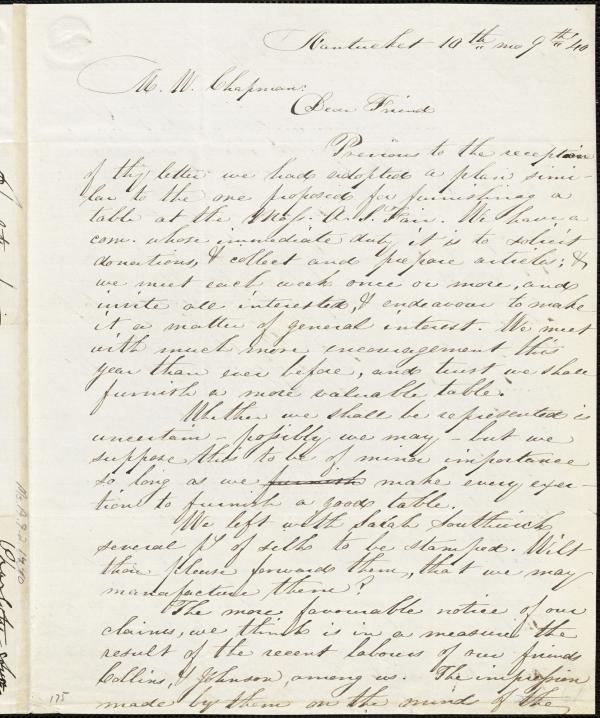 Nantucket 10th mo 9th 40
M. W. Chapman:
Dear Friend
Previous to the reception
of thy letter we had adopted a plan simi-
lar to the one proposed for furnishing a
table at the Mass. A. S. Fair. We have a
com. whose immediate duty it is to solicit
donations, & collect and prepare articles; &
we meet each week once or more, and
invite all interested, & endeavour to make
it a matter of general interest. We meet
with much more encouragement this
year than ever before, and trust we shall
furnish a more valuable table.
Whether we shall be represented is
uncertain - possibly we may - but we
suppose this to be of minor importance
so long as we furnish make every exer-
tion to furnish a good table.
We left with Sarah Southwick
several ps of silk to be stamped. Wilt
thou please forward them, that we may
manufacture them?
The more favourable notice of our
claims, we think is in a measure the
result of the recent labours of our friends
Collins, & Johnson, among us. The impression
made by them on the mind of the
175